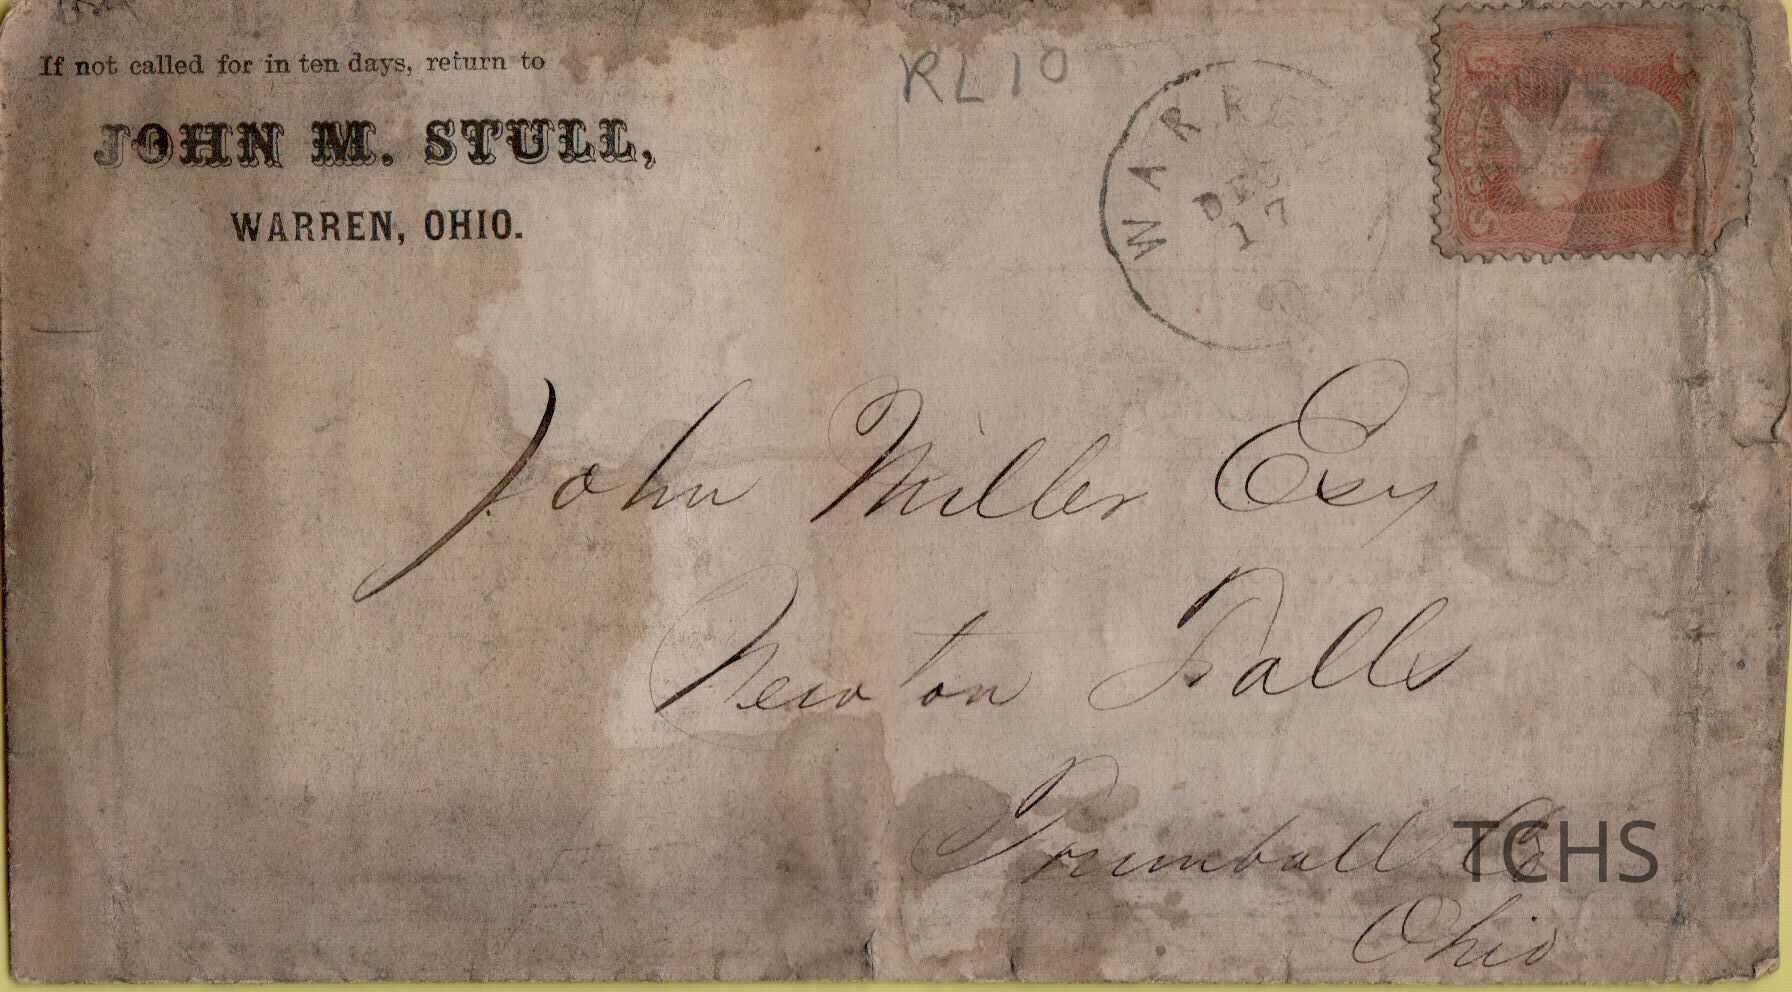 If not called for in ten days, return to
JOHN M. STULL,
WARREN, OHIO.
RL10
WARRE
DEC
17
John Miller Esq
Newton Falls
Trumball Co
Ohio
TCHS